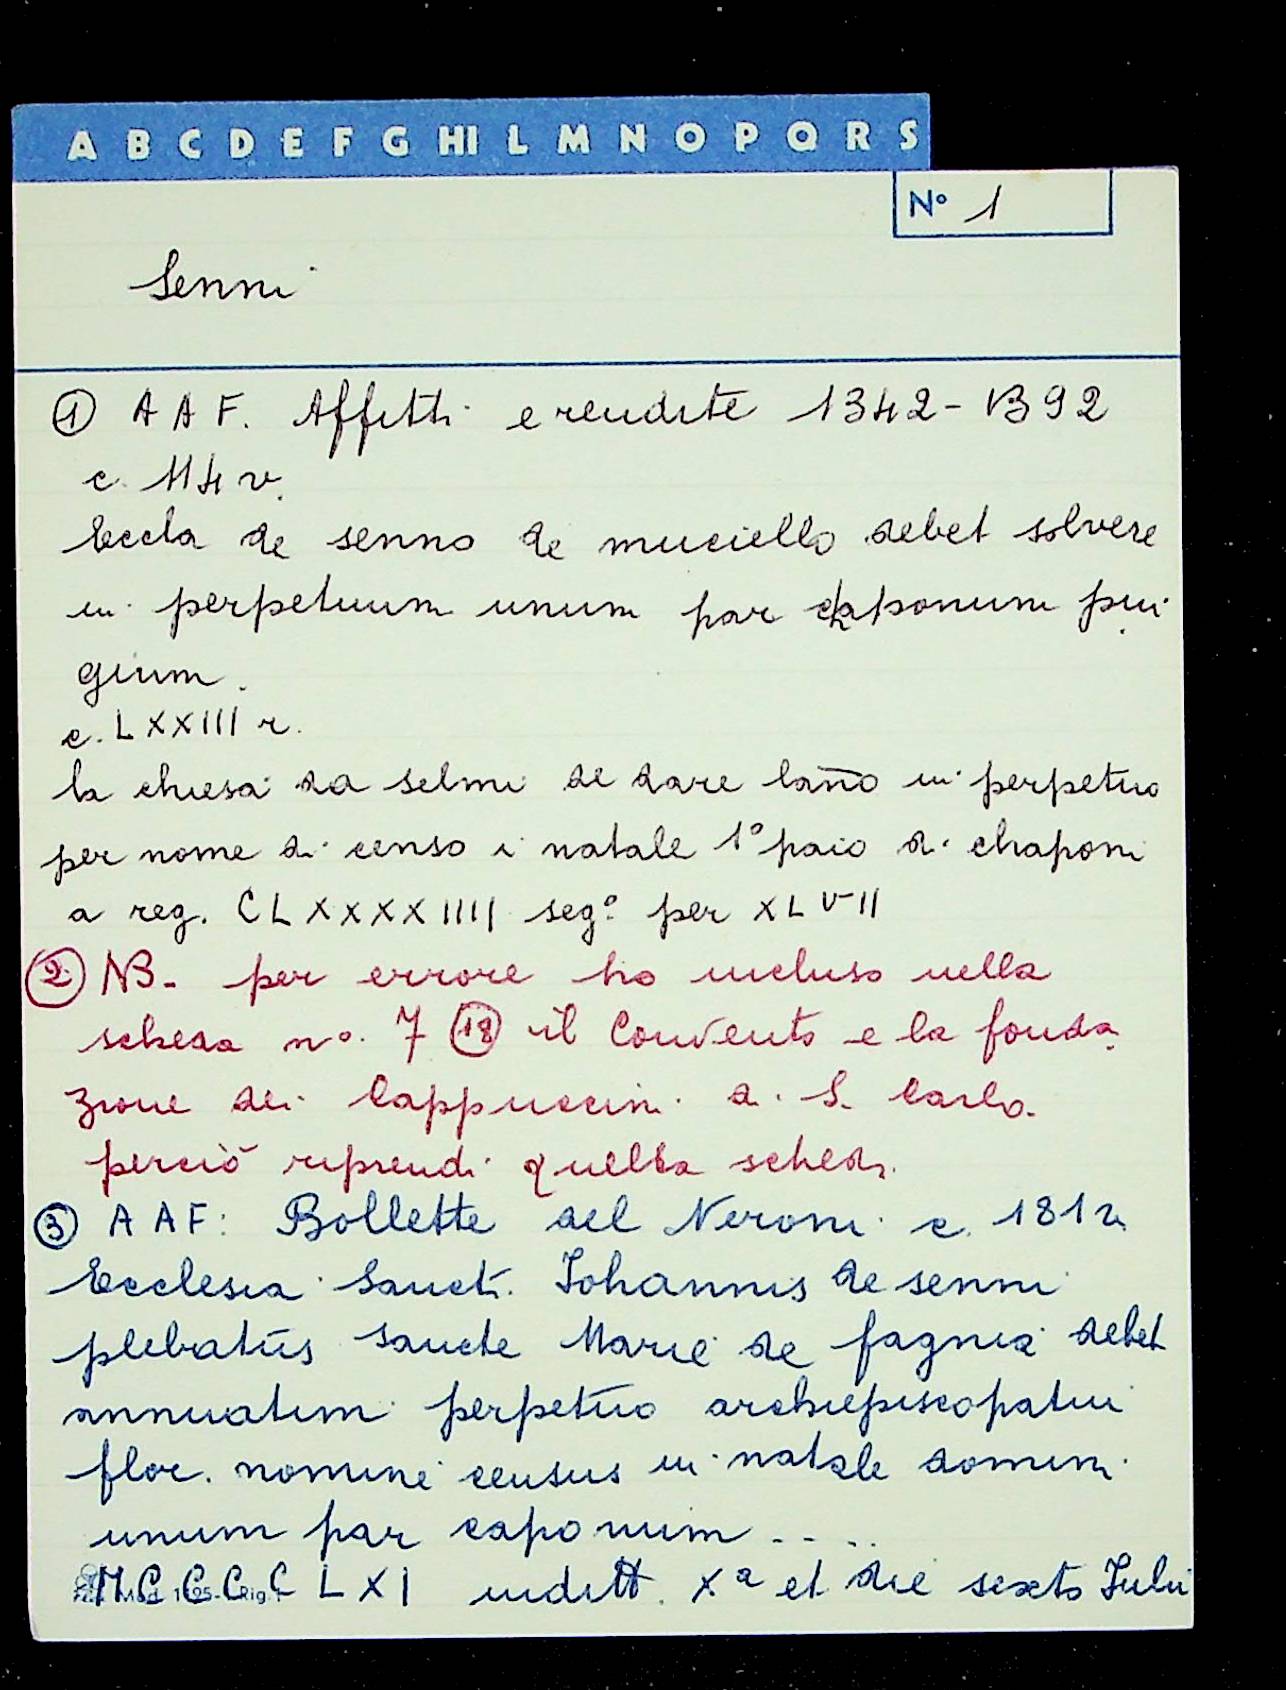 A B C D E F G HI L M N O P Q R S
N° 1
Senni
① A A F. Affitti e rendite 1342-1392
c. 114 v.
Eccla de senno de muciello debet solvere
in perpetuum unum par caponum pin
gium.
c. LXXIII r.
la chiesa da selmi de dare lano in perpetuo
per nome di censo i natale 1° paio di chaponi
a reg. CLXXXXIIII seg° per XLVII
② NB- per errore ho incluso nella
scheda n°. 7 ⑱ il Convento e la fonda
zione dei Cappuccini di S. Carlo.
perciò riprendi quella scheda.
③ A A F: Bollette del Neroni c. 181 r.
Ecclesia Sanct. Iohannis de senni
plebatus sancte Marie de fagnia debet
annuatim perpetuo archiepiscopatui
flor. nomine census in natale domini
unum par caponum ....
MCCCCLXI inditt. Xª et die sexto Iulii